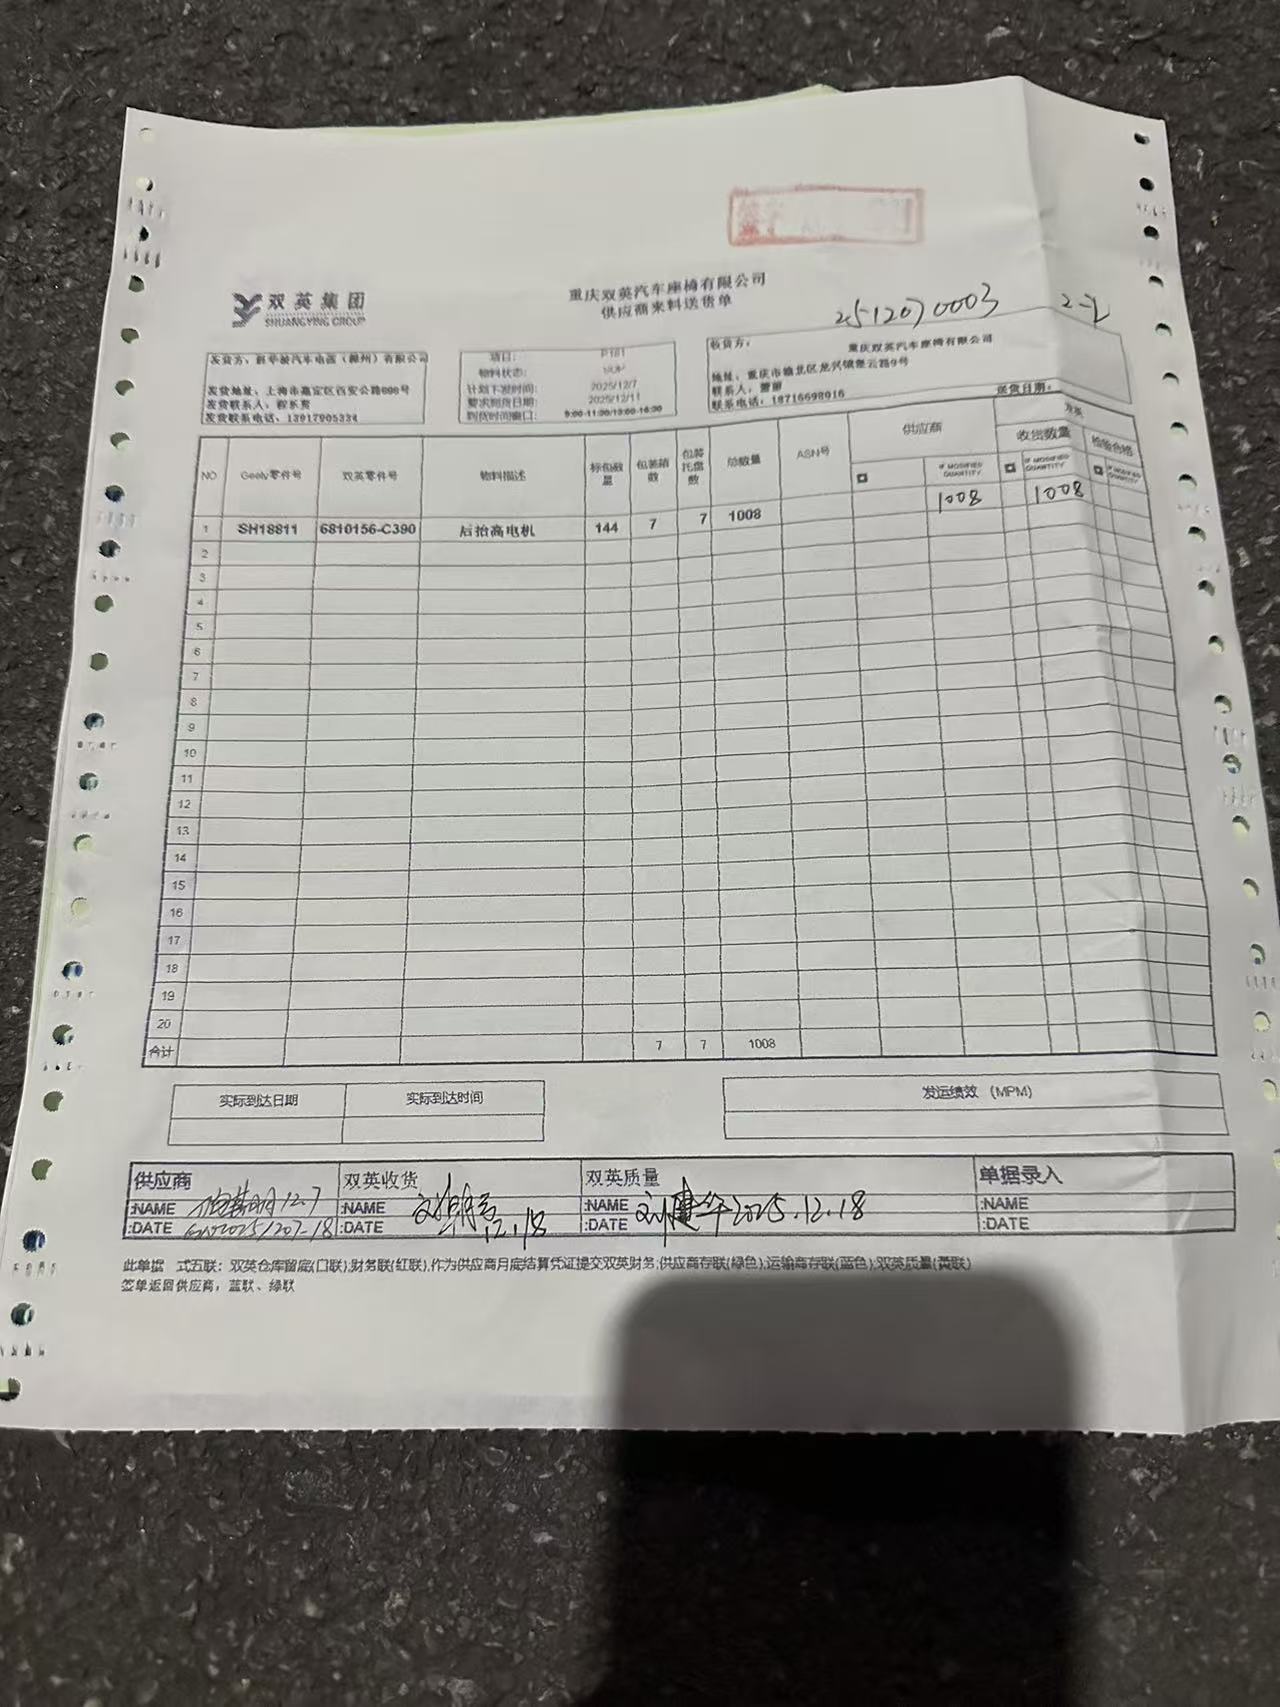 双英集团
SHUANGYING GROUP
重庆双英汽车座椅有限公司
供应商来料送货单
2512070003
发货方：汽车电器（）有限公司
发货地址：上海市嘉定区百安公路608号
发货联系人：
发货联系电话：13917905334
项目：
物料状态：
计划下发时间：2025/12/7
要求到货日期：2025/12/11
到货时间窗口：9:00-11:30/13:00-16:30
收货方：重庆双英汽车座椅有限公司
地址：重庆市渝北区龙兴镇云路9号
联系人：
联系电话：18716698016
送货日期：
NO Geely零件号 双英零件号 物料描述 标包数量 包装箱数 包装托盘数 总数量 ASN号 供应商 双英
收货数量 检验合格
IF MODIFIED QUANTITY IF MODIFIED QUANTITY IF MODIFIED QUANTITY
1 SH18811 6810156-C390 后抬高电机 144 7 7 1008 1008 1008
2
3
4
5
6
7
8
9
10
11
12
13
14
15
16
17
18
19
20
合计 7 7 1008
实际到达日期 实际到达时间
发运绩效 (MPM)
供应商 双英收货 双英质量 单据录入
:NAME 12.7 :NAME :NAME 刘建华2025.12.18 :NAME
:DATE :DATE 12.18 :DATE :DATE
此单据 式五联：双英仓库留底(口联);财务联(红联),作为供应商月底结算凭证提交双英财务;供应商存联(绿色);运输商存联(蓝色);双英质量(黄联)
签单返回供应商：蓝联、绿联